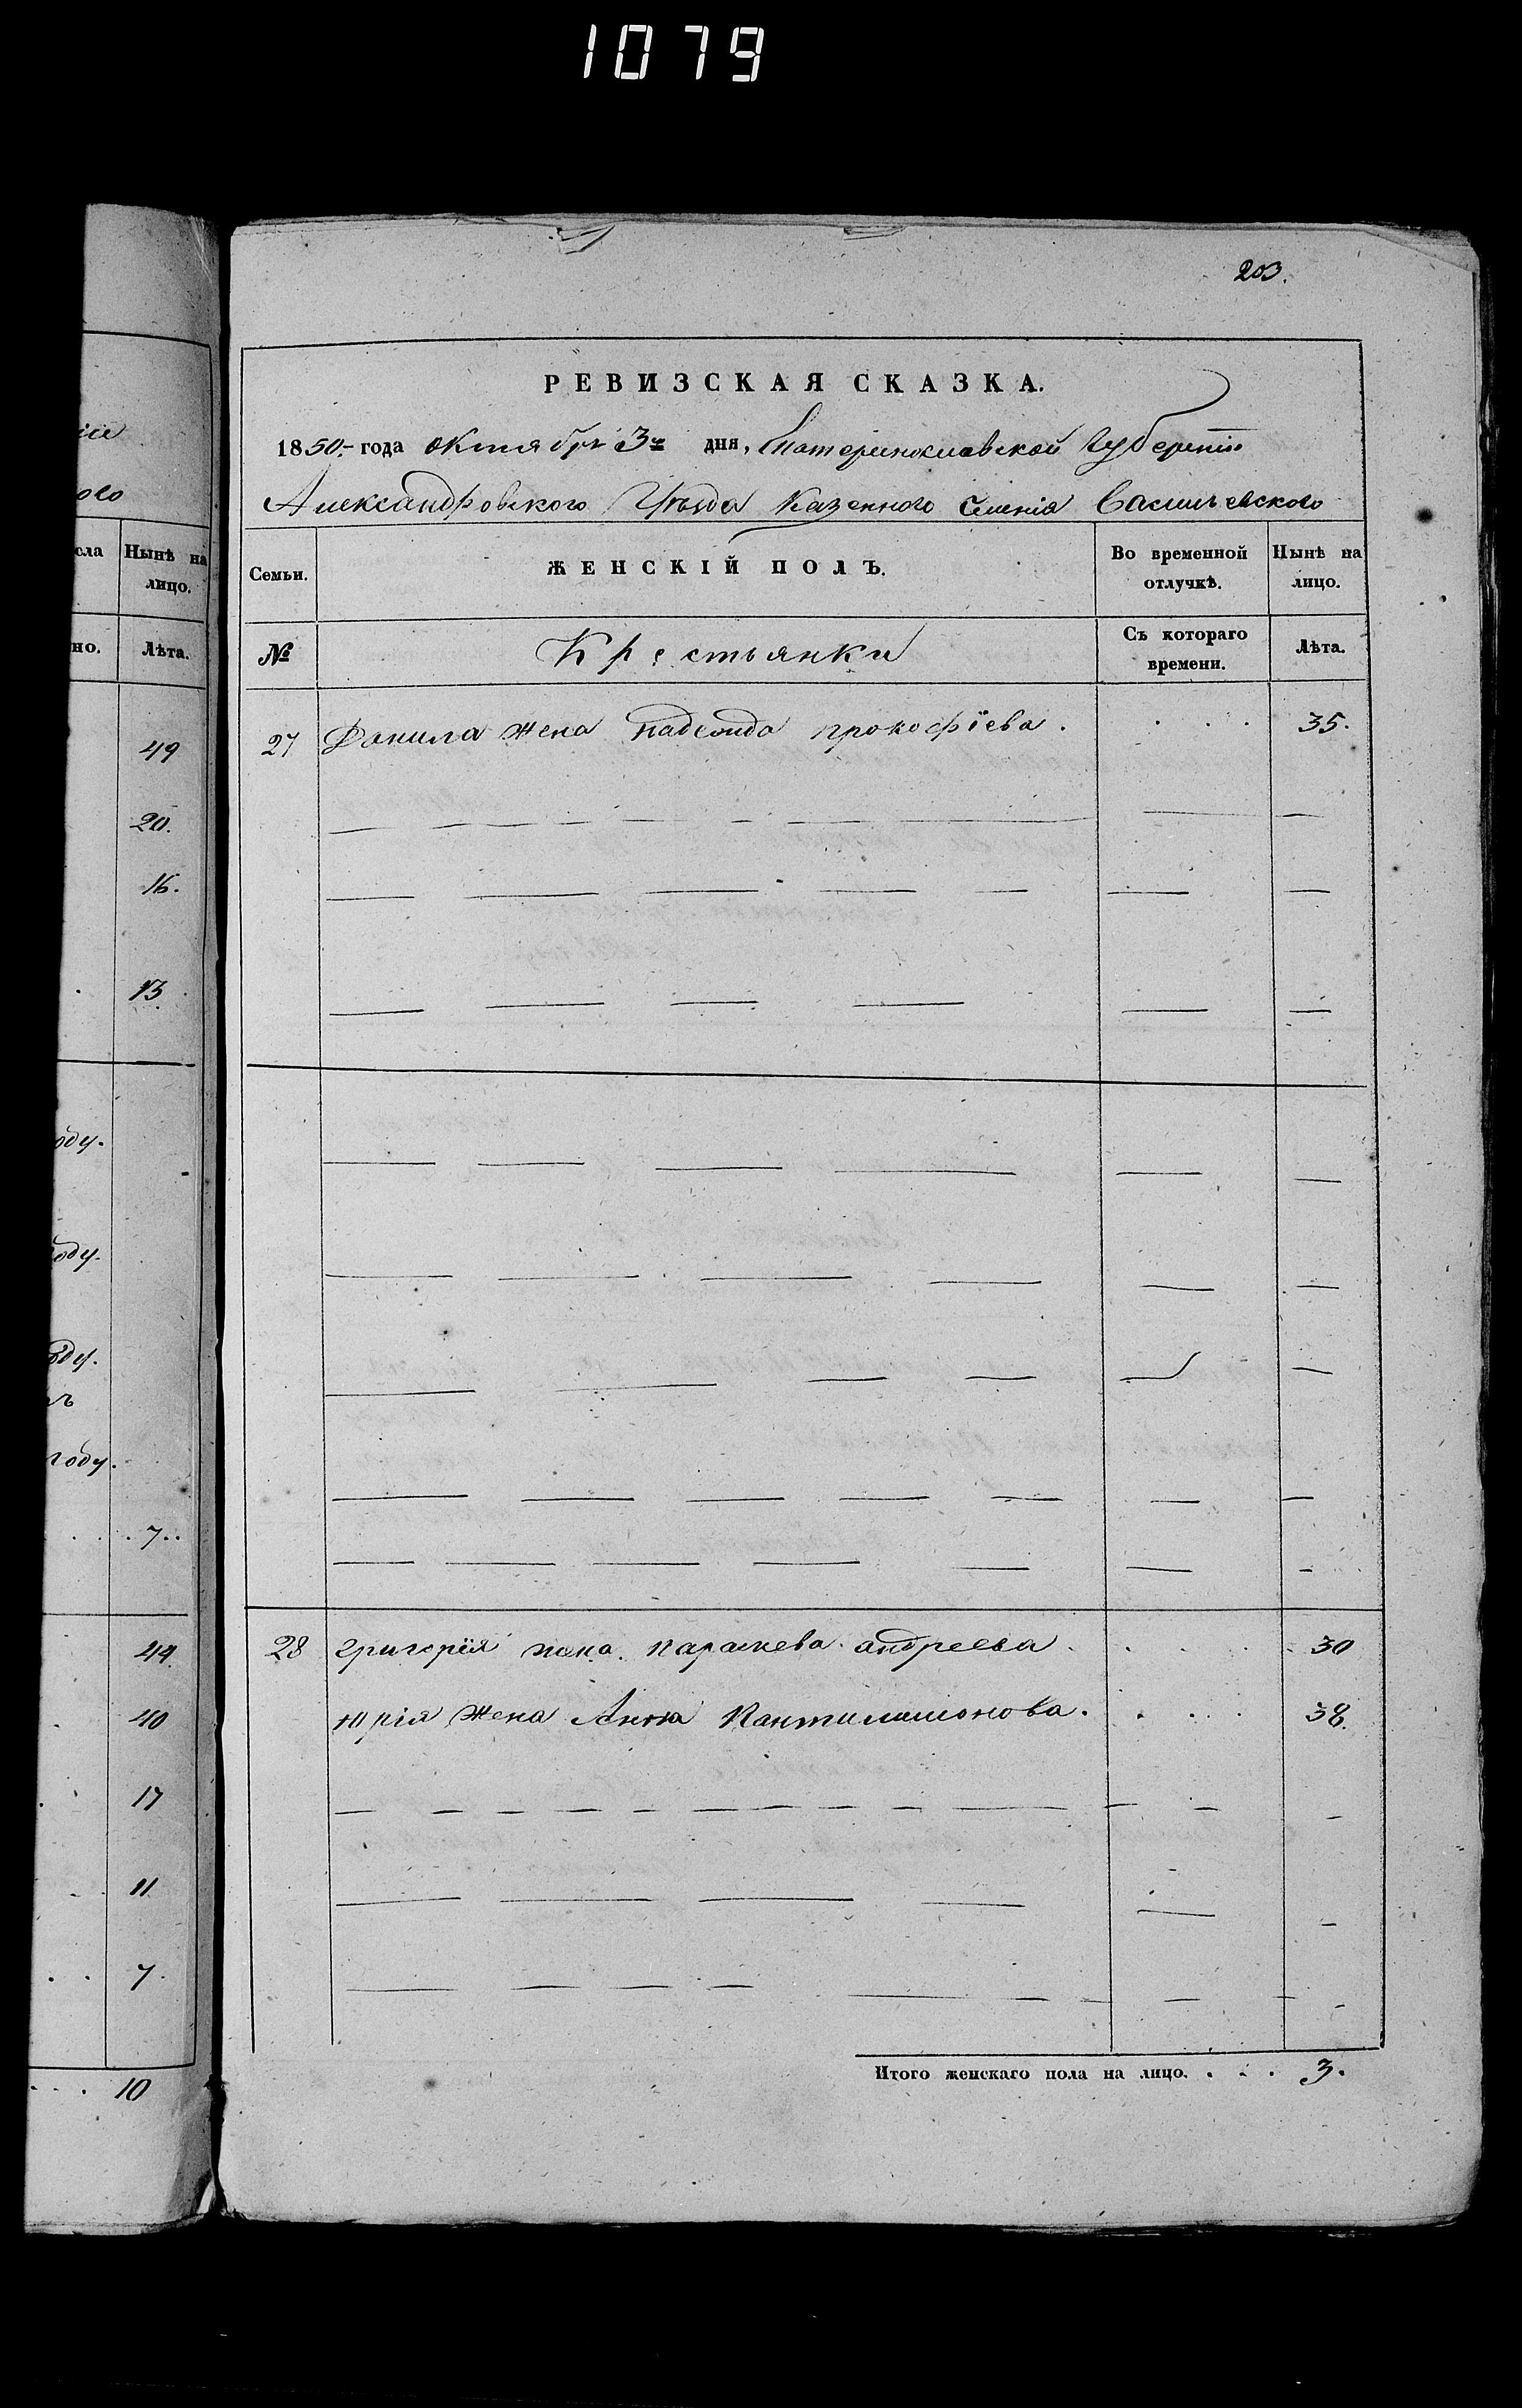 1079
203.
РЕВИЗСКАЯ СКАЗКА.
1850.- года октября 3го дня, Екатеринославской Губерніи
Александровского Уѣзда Казенного Селенія Васильевского
Семьи. ЖЕНСКІЙ ПОЛЪ. Во временной отлучкѣ. Нынѣ на лицо.
№ Крестьянки Съ котораго времени. Лѣта.
27 Данила жена надежда прокофіева. 35.
28 григорія жена параскева андреева. 30
юрія жена Анна Пантилимонова. 38.
Итого женскаго пола на лицо. . . . 3.
ого
сла Нынѣ на лицо.
но. Лѣта.
49
20.
16.
13
оду.
оду.
оду.
году.
7.
44.
40
17
11
7.
10